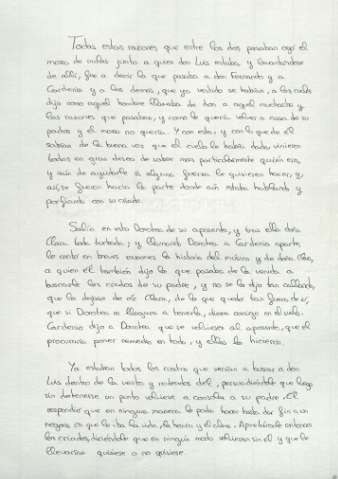 Todas estas razones que entre los dos pasaban oyó el
mozo de mulas junto a quien don Luis estaba y levantándose
de allí, fue a decir lo que pasaba a don Fernando y a
Cardenio y a los demás, que ya vestido se habían, a los cuales
dijo como aquel hombre llamaba de don a aquel muchacho y
las razones que pasaban, y como le quería volver a casa de su
padre y el mozo no quería. Y con esto, y con lo que de él
sabían de la buena voz que el cielo le había dado, vinieron
todos en gran deseo de saber más particularmente quién era,
y aún de ayudarle si alguna fuerza le quisieren hacer, y
así, se fueron hacia la parte donde aún estaba hablando y
porfiando con su criado.
Salía en esto Dorotea de su aposento, y tras ella doña
Clara toda turbada; y llamando Dorotea a Cardenio aparte,
le contó en breves razones la historia del músico y de doña Clara,
a quien él también dijo lo que pasaba de la venida a
buscarle los criados de su padre, y no se lo dijo tan callando,
que lo dejase de oír Clara, de lo que quedó tan fuera de sí,
que si Dorotea no llegara a tenerla, diera consigo en el suelo.
Cardenio dijo a Dorotea que se volviesen al aposento, que él
procuraría poner remedio en todo, y ellas lo hicieron.
Ya estaban todos los cuatro que venían a buscar a don
Luis dentro de la venta y rodeados dél, persuadiéndole que luego
sin detenerse un punto volviese a consolar a su padre. Él
respondió que en ninguna manera lo podía hacer hasta dar fin a un
negocio en que le iba la vida, la honra y el alma. Apretáronle entonces
los criados, diciéndole que en ningún modo volverían sin él y que le
llevarían quisiese o no quisiese.